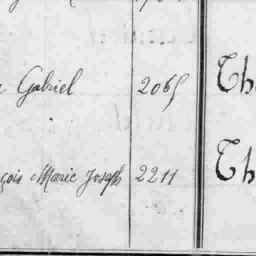 Gabriel 2065 Th
çois Marie Joseph 2211 Th